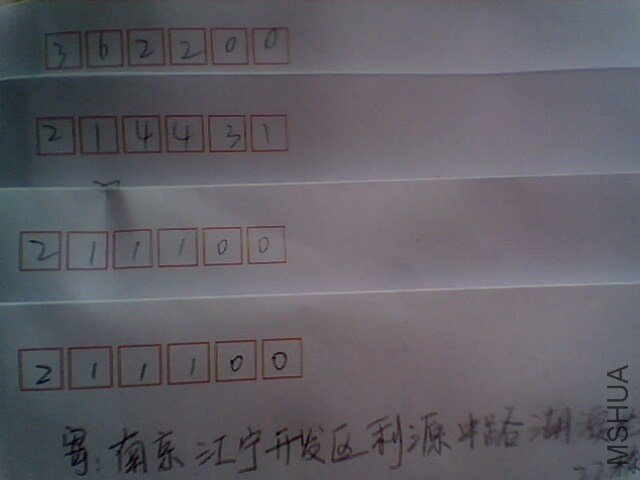 362200
214431
211100
211100
寄:南京江宁开发区利源中路湖
22栋
MSHUA